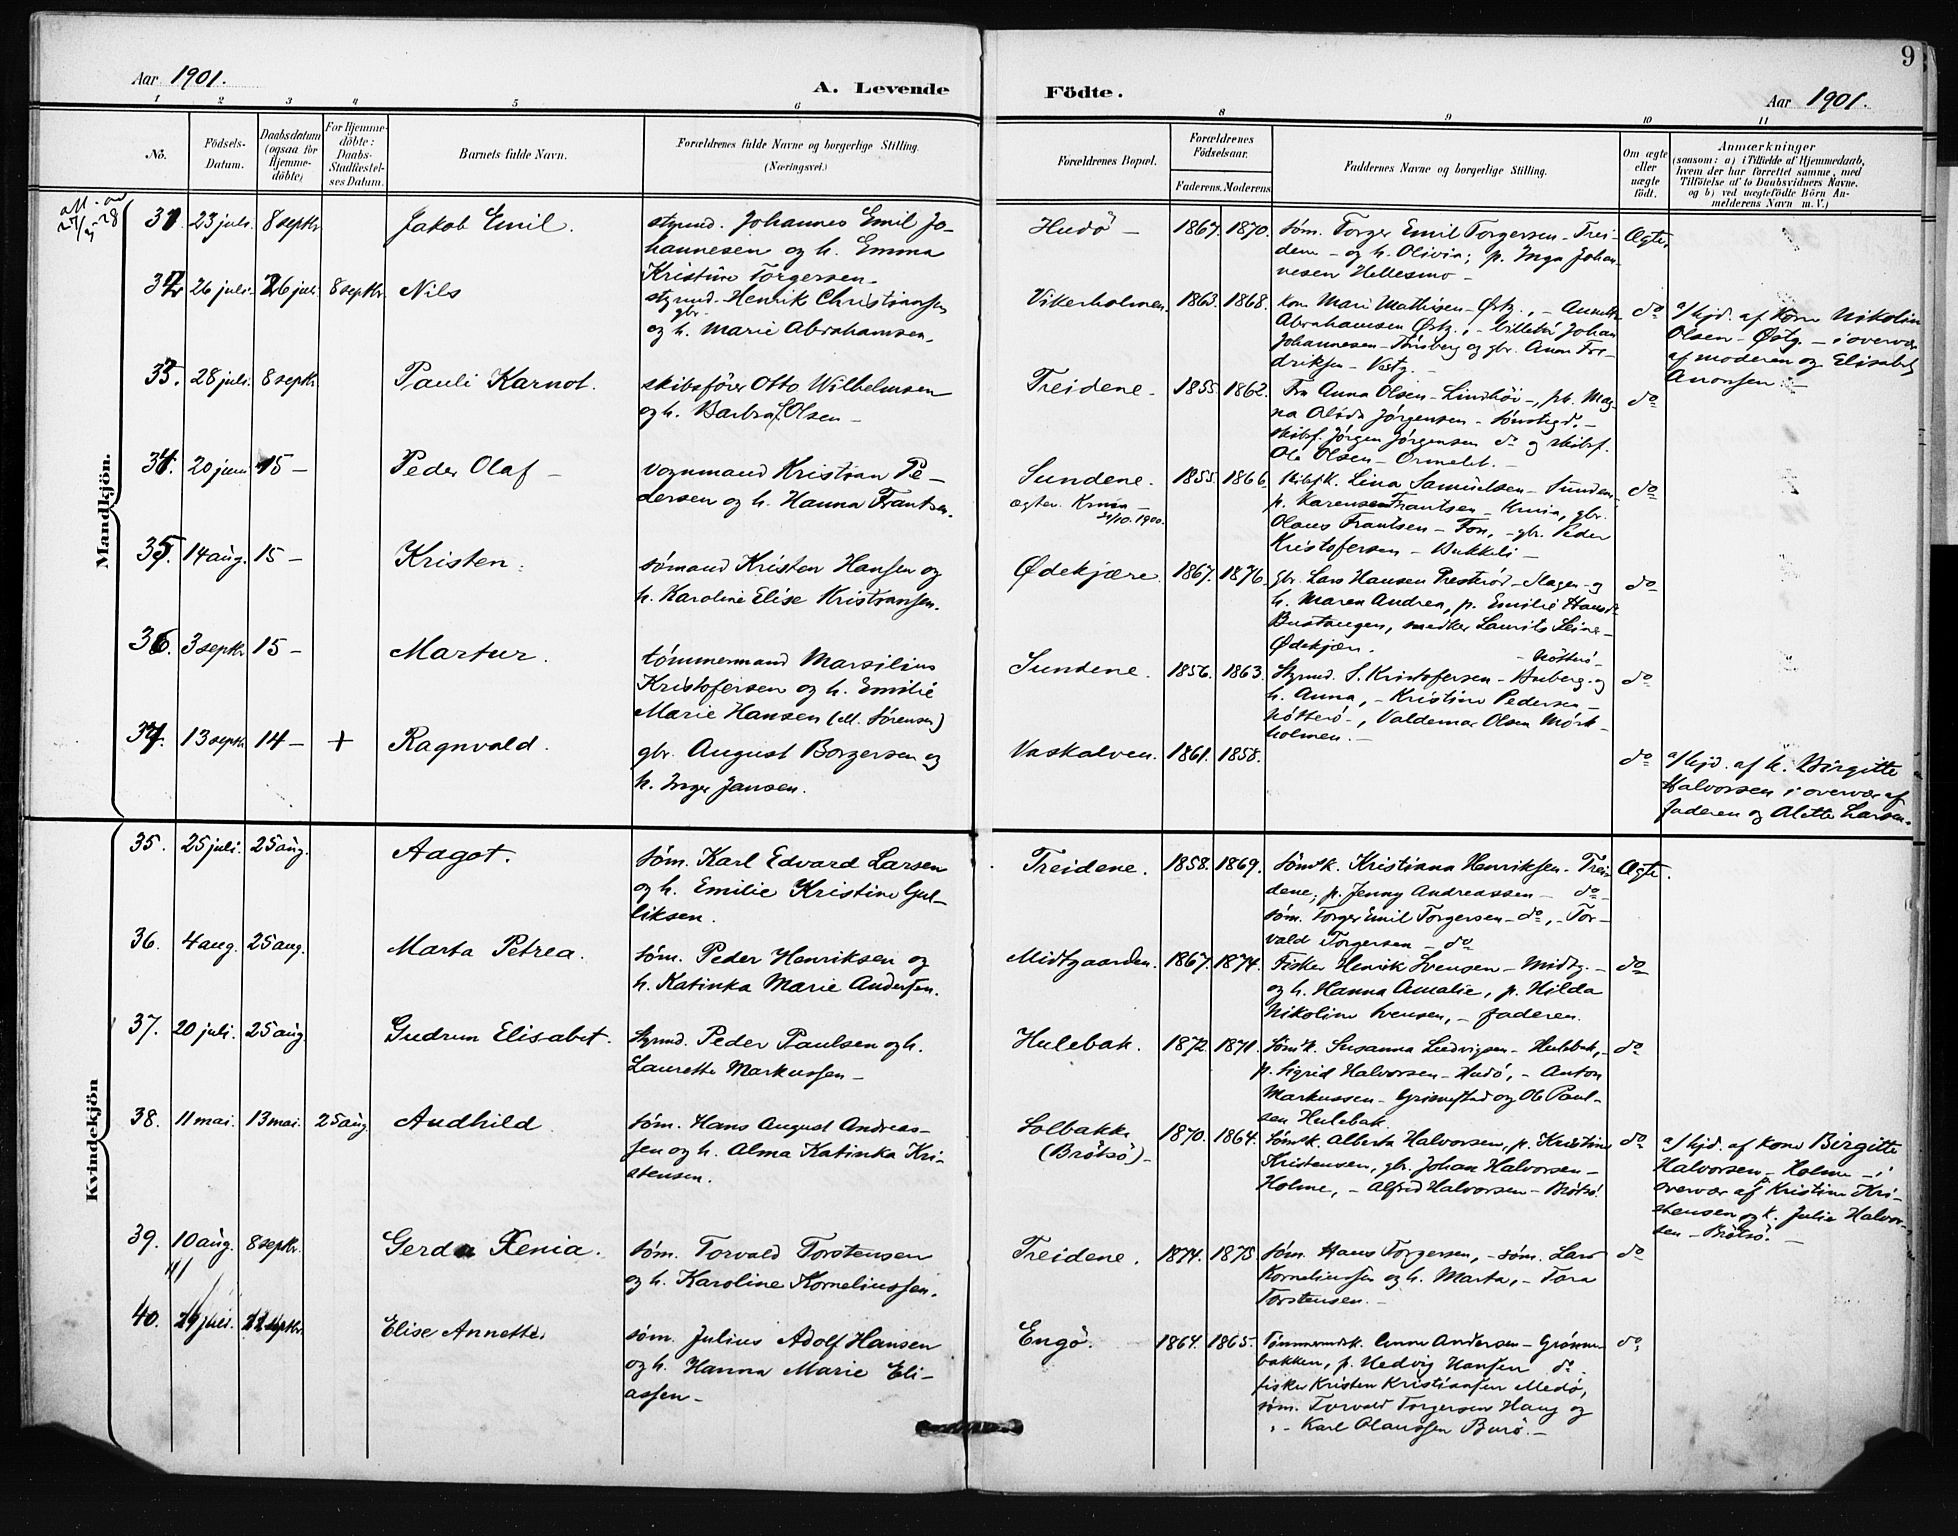 9
Aar 1901.
A. Levende Födte.
Aar 1901.
1 2 3 4 5 6 8 9 10 11
No.
Födsels-Datum.
Daabsdatum (ogsaa for Hjemme-döbte)
For Hjemme-döbte: Daabs-Stadfæstel-ses Datum.
Barnets fulde Navn.
Forældrenes fulde Navne og borgerlige Stilling. (Næringsvei.)
Forældrenes Bopæl.
Forældrenes Födselsaar.
Faderens. Moderens.
Faddernes Navne og borgerlige Stilling.
Om ægte eller uægte födt.
Anmærkninger
(saasom: a) i Tilfælde af Hjemmedaab, hvem der har forrettet samme, med Tilföielse af to Daabsvidners Navne. og b) ved uægtefödte Börn An-melderens Navn m. V.)
Mandkjön.
31. 23 juli. 8 septbr. Jakob Emil.
styrmd. Johannes Emil Jo-
hannesen og h. Emma
Kristine Torgersen.
Hudö – 1867. 1870.
söm. Torger Emil Torgersen – Trei-
dene – og h. Olivia; p. Inga Johan-
nesen Hellesmo –
Ægte
32. 26 juli. 26 juli. 8 septbr. Nils
styrmd. Henrik Christiansen
og h. Marie Abrahamsen.
Vikerholmen. 1863. 1868.
kone Mari Mathisen – Østg., – Annette
Abrahamsen Østg., – Johan
Johannesen – Tönsberg og gbr. Anon Fre-
driksen – Vestg. –
do
a/ hjd. af Kone Nikoline
Olsen – Østg. – i overvær
af moderen og Elisabet
Anonsen. –
33. 28 juli. 8 septbr. Pauli Karnot.
skibsförer Otto Wilhelmsen
og h. Barbra Olsen –
Treidene. 1855. 1862.
Fru Anna Olsen – Lindhöi –, p. Mag-
na Olöda Jörgensen – Sönstegd. –
skibsf. Jörgen Jörgensen do og skibsf.
Ole Olsen – Ormelet. –
do
34. 20 juni 15 – Peder Olaf –
vognmand Kristian Pe-
dersen og h. Hanna Frantsen.
Sundene. 1855. 1866.
/10. 1900.
Lina Samuelsen – Sundene
p. Karensen Frantsen – Krusa, gbr.
Olaves Frantsen – Fon, – gbr. Peder
Kristofersen – Bukkeli –
do
35. 14 aug. 15 – Kristen.
sömand Kristen Hansen og
h. Karoline Elise Kristiansen.
Ødekjære. 1867. 1876.
gbr. Lars Hansen Presteröd – Slagen – og
h. Maren Andrea, p. Emilie Hansen
Bustangen, snedker Laurits Seine –
Ødekjær.
do
36. 3 septbr 15 – Martur.
tömmermand Marsilius
Kristofersen og h. Emilie
Marie Hansen (ell. Sörensen)
Sundene. 1856. 1863.
– Nötterö –
Styrmd. S. Kristofersen – Buberg – og
h. Anna, – Kristine Pedersen –
Nötterö –, Valdemar Olsen Mörk-
holmen. –
do
37. 13 septbr 14 – + Ragnvald.
gbr. August Borgersen og
h. Inger Jansen.
Vaskalven. 1861. 1858.
do
a/ hjd. af h. Birgitte
Halvorsen i overvær af
faderen og Alette Larsen.
Kvindekjön
35. 25 juli. 25 aug. Aagot.
söm. Karl Edvard Larsen
og h. Emilie Kristine Gul-
liksen.
Treidene. 1858. 1869.
Sömk. Kristiana Henriksen – Trei-
dene, p. Jenny Andreassen – do –
söm. Torger Emil Torgersen – do, – Tor-
vald Torgersen – do
Ægte.
36. 4 aug. 25 aug. Marta Petrea.
söm. Peder Henriksen og
h. Katinka Marie Andersen.
Midtgaarden. 1867. 1874.
Fisker Henrik Svensen – Midtg. –
og h. Hanna Amalie, p. Hilda
Nikoline Svensen, – faderen.
do
37. 20 juli. 25 aug. Gudrun Elisabet.
Styrmd. Peder Paulsen og h.
Laurette Markussen –
Hulebak. 1872. 1871.
Sömk. Susanna Ludvigsen – Hulebak, –
p. Sigrid Halvorsen – Hudö, – Anton
Markussen – Grimestad og Ole Paul-
sen Hulebak.
do
38. 11 mai. 13 mai. 25 aug. Audhild.
söm. Hans August Andreas-
sen og h. Alma Katinka Kri-
stensen.
Solbakke
(Brötsö) – 1870. 1864.
Sömk. Alberta Halvorsen, p. Kristine
Kristensen, gbr. Johan Halvorsen –
Holme, – Alfred Halvorsen – Brötsö.
do
a/ hjd. af kone Birgitte
Halvorsen – Holme – i
overvær af Kristine Kri-
stensen og k. Julie Halvor-
sen – Brötsö. –
39. 10 aug. 8 septbr. Gerda Xenia.
söm. Torvald Torstensen
og h. Karoline Korneliussen.
Treidene. 1874. 1875
söm. Hans Torgersen, – söm. Lars
Korneliussen og h. Marta, – Tora
Torstensen. –
do
40. 29 juli. 22 septbr. Elise Annette.
söm. Julius Adolf Hansen
og h. Hanna Marie Eli-
assen –
Engö. 1864. 1865.
Tömmermdsk. Anne Andersen – Grönne-
bakken, p. Hedvig Hansen do.
fisker Kristen Kristiansen Medö,
söm. Torvald Torgersen Haug og
– Karl Olaussen Burö. –
do